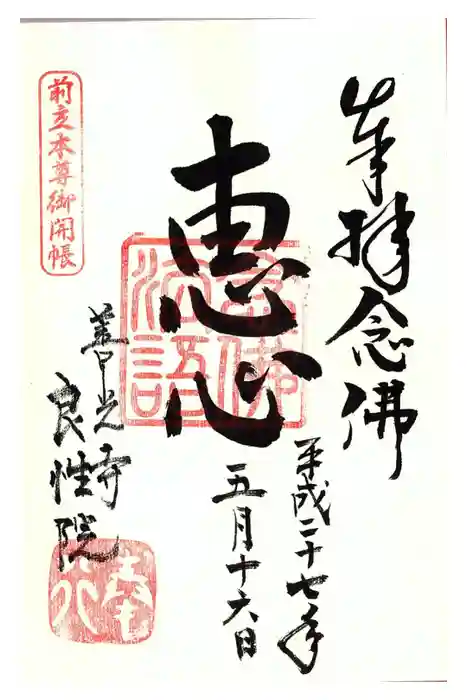 奉拝念佛
惠心
平成二十七年
五月十六日
前立本尊御開帳
善光寺
良性院
法語